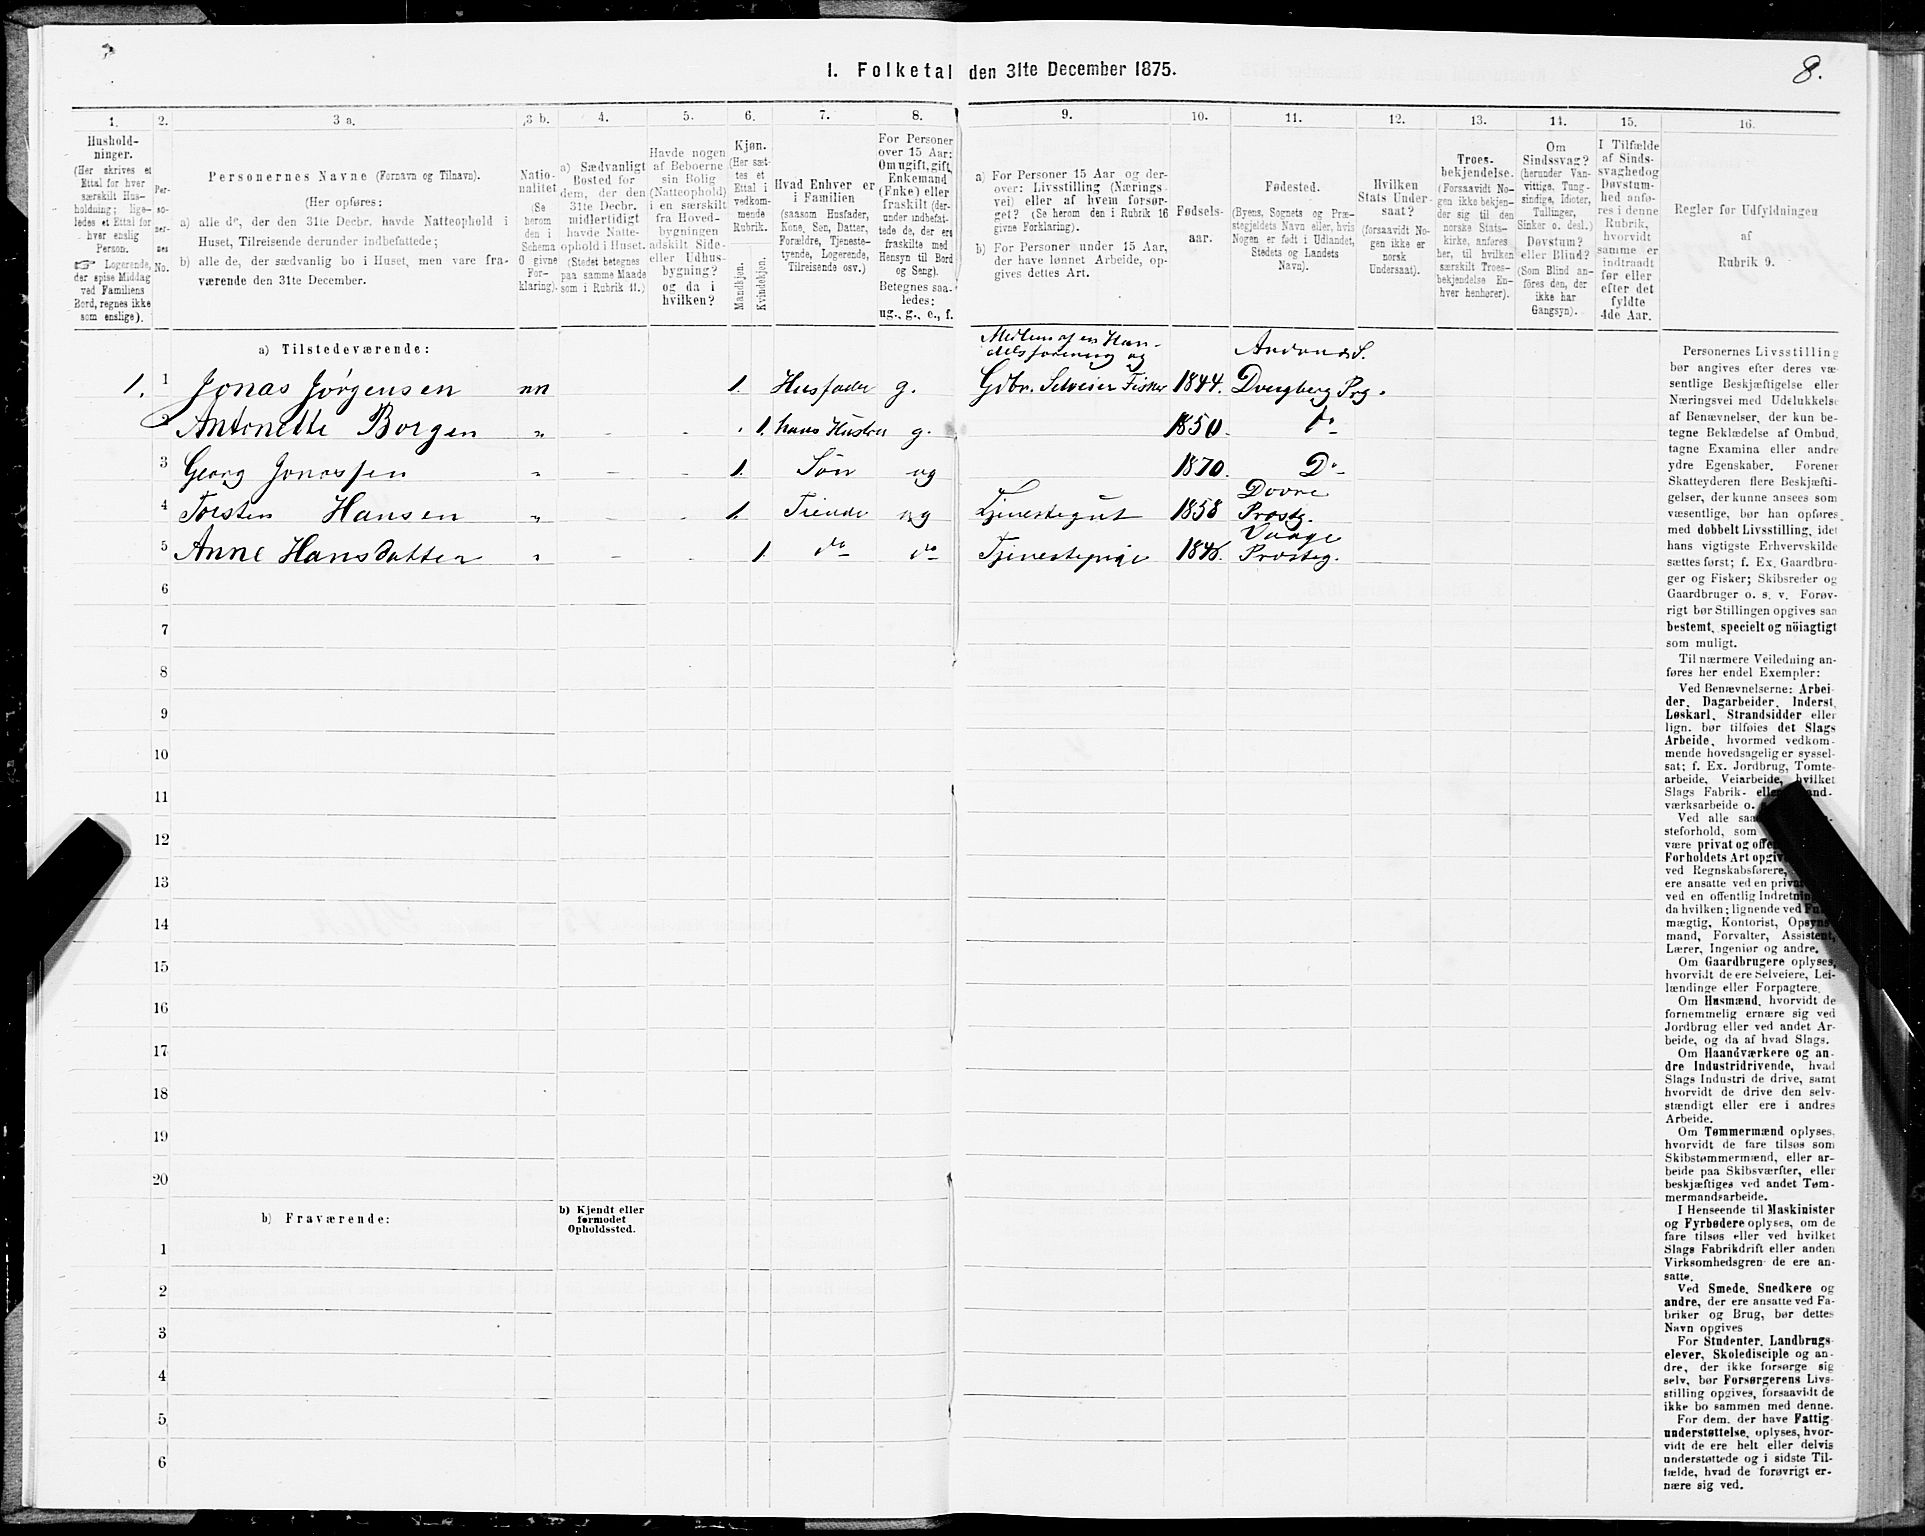 1. Folketal den 31te December 1875.
8.
1.
2.
3 a.
3 b.
4.
5.
6.
7.
8.
9.
10.
11.
12.
13.
14.
15.
16.
Hushold-
ninger.
(Her skrives et
Ettal for hver
særskilt Hus-
holdning; lige-
ledes et Ettal for
hver enslig
Person.
Logerende,
der spise Middag
ved Familiens
Bord, regnes ikke
som enslige).
Per-
so-
ner-
nes
No.
Personernes Navne (Fornavn og Tilnavn).
(Her opføres:
a) alle de, der den 31te Decbr. havde Natteophold i
Huset, Tilreisende derunder indbefattede;
b) alle de, der sædvanlig bo i Huset, men vare fra-
værende den 31te December.
Natio-
nalitet
(Se
herom
den i
Schema
O givne
For-
klaring).
a) Sædvanligt
Bosted for
dem, der den
31te Decbr.
midlertidigt
havde Natte-
ophold i Huset.
(Stedet betegnes
paa samme Maade
som i Rubrik 11.)
Havde nogen
af Beboerne
sin Bolig
(Natteophold)
i en særskilt
fra Hoved-
bygningen
adskilt Side-
eller Udhus-
bygning?
og da i
hvilken?
Kjøn.
(Her sæt-
tes et
Ettal i
vedkom-
mende
Rubrik.
Mandkjøn.
Kvindekjøn.
Hvad Enhver er
i Familien
(saasom Husfader,
Kone, Søn, Datter,
Forældre, Tjeneste-
tyende, Logerende,
Tilreisende osv.)
For Personer
over 15 Aar:
Om ugift, gift,
Enkemand
(Enke) eller
fraskilt (der-
under indbefat-
tede de, der ere
fraskilte med
Hensyn til Bord
og Seng).
Betegnes saa-
ledes:
ug., g., e., f.
a) For Personer 15 Aar og der-
over: Livsstilling (Nærings-
vei) eller af hvem forsør-
get? (Se herom den i Rubrik 16
givne Forklaring.)
b) For Personer under 15 Aar,
der have lønnet Arbeide, op-
gives dettes Art.
Fødsels-
aar.
Fødested.
(Byens, Sognets og Præ-
stegjeldets Navn eller, hvis
Nogen er født i Udlandet,
Stedets og Landets
Navn).
Hvilken
Stats Under-
saat?
(forsaavidt No-
gen ikke er
norsk
Undersaat).
Troes-
bekjendelse.
(Forsaavidt No-
gen ikke bekjen-
der sig til den
norske Stats-
kirke, anføres
her, til hvilken
særskilt Troes-
bekjendelse En-
hver henhører).
Om
Sindssvag?
(herunder Van-
vittige, Tung-
sindige, Idioter,
Tullinger,
Sinker o. desl.)
Døvstum?
eller Blind?
(Som Blind an-
føres den, der
ikke har
Gangsyn).
I Tilfælde
af Sinds-
svaghed og
Døvstum-
hed anfø-
res i denne
Rubrik,
hvorvidt
samme er
indtraadt
før eller
efter det
fyldte
4de Aar.
Regler for Udfyldningen
af
Rubrik 9.
a) Tilstedeværende:
1. 1 Jonas Jørgensen nn 1. Husfader g. Medlem af en Han-
delsforening og
Gdbr. Selveier Fisker 1844. Andenæs S.
Dverberg Prg.
2 Antonette Borgen " - - . 1. hans Hustru g. 1850. Do
3 Georg Jonassen " - - 1. Søn ug 1870. Do
4 Torsten Hansen " - - 1. Tiende ug Tjenestegut 1858 Dovre
Prestg.
5 Anne Hansdatter " - - 1. do do Tjenestepige Vaage
Presteg.
6
7
8
9
10
11
12
13
14
15
16
17
18
19
20
b) Fraværende:
b) Kjendt eller
formodet
Opholdssted.
1
2
3
4
5
6
Personernes Livsstilling
bør angives efter deres væ-
sentlige Beskjæftigelse eller
Næringsvei med Udelukkelse
af Benævnelser, der kun be-
tegne Beklædelse af Ombud,
tagne Examina eller andre
ydre Egenskaber. Forener
Skatteyderen flere Beskjæfti-
gelser, der kunne ansees som
væsentlige, bør han opføres
med dobbelt Livsstilling, idet
hans vigtigste Erhvervskilde
sættes først; f. Ex. Gaardbru-
ger og Fisker; Skibsreder og
Gaardbruger o. s. v. Forøv-
rigt bør Stillingen opgives saa
bestemt, specielt og nöiagtigt
som muligt.
Til nærmere Veiledning an-
føres her endel Exempler:
Ved Benævnelserne: Arbei-
der, Dagarbeider, Inderst,
Løskarl, Strandsidder eller
lign. bør tilføies det Slags
Arbeide, hvormed vedkom-
mende hovedsagelig er syssel-
sat; f. Ex. Jordbrug, Tomte-
arbeide, Veiarbeide, hvilket
Slags Fabrik- eller Hand-
værksarbeide o.
Ved alle saa
steforhold, som
være privat og offe
Forholdets Art opgiv
ved Regnskabsførere,
ere ansatte ved en privat
ved en offentlig Indretning
da hvilken; lignende ved Fuld-
mægtig, Kontorist, Opsyns-
mand, Forvalter, Assistent,
Lærer, Ingeniør og andre.
Om Gaardbrugere oplyses,
hvorvidt de ere Selveiere, Lei-
lændinge eller Forpagtere.
Om Husmænd, hvorvidt de
fornemmelig ernære sig ved
Jordbrug eller ved andet Ar-
beide, og da af hvad Slags.
Om Haandværkere og an-
dre Industridrivende, hvad
Slags Industri de drive, samt
hvorvidt de drive den selv-
stændigt eller ere i andres
Arbeide.
Om Tømmermænd oplyses,
hvorvidt de fare tilsøs som
Skibstømmermænd, eller ar-
beide paa Skibsværfter, eller
beskjæftiges ved andet Tøm-
mermandsarbeide.
I Henseende til Maskinister
og Fyrbødere oplyses, om de
fare tilsøs eller ved hvilket
Slags Fabrikdrift eller anden
Virksomhedsgren de ere an-
satte.
Ved Smede, Snedkere og
andre, der ere ansatte ved Fa-
briker og Brug, bør dettes
Navn opgives
For Studenter, Landbrugs-
elever, Skoledisciple og an-
dre, der ikke forsørge sig
selv, bør Forsørgerens Livs-
stilling opgives, forsaavidt de
ikke bo sammen med denne.
For dem, der have Fattig-
understøttelse, oplyses, hvor-
vidt de ere helt eller delvis
understøttede og i sidste Til-
fælde, hvad de forøvrigt er-
nære sig ved.